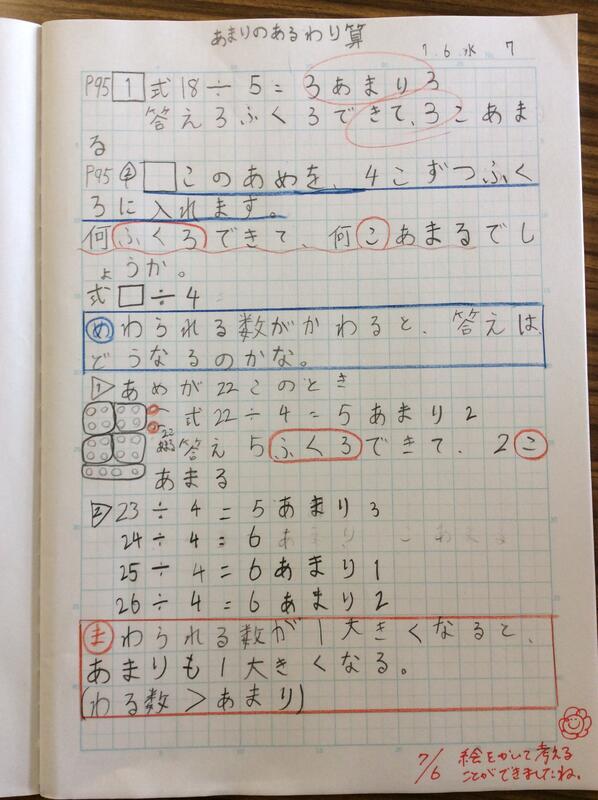 あまりのあるわり算
7.6 水 7
P95 1 式 18÷5=3あまり3
答え3ふくろできて、3こあま
る
P95 □このあめを、4こずつふく
ろに入れます。
何ふくろできて、何こあまるでし
ょうか。
式 □÷4
めわられる数がかわると、答えは、
どうなるのかな。
1 あめが22このとき
式22÷4=5あまり2
答え 5ふくろできて、2こ
あまる
2 23÷4=5あまり3
24÷4=6
25÷4=6あまり1
26÷4=6あまり2
まわられる数が1大きくなると、
あまりも1大きくなる。
(わる数>あまり)
7/6 絵をかいて考える
ことができましたね。